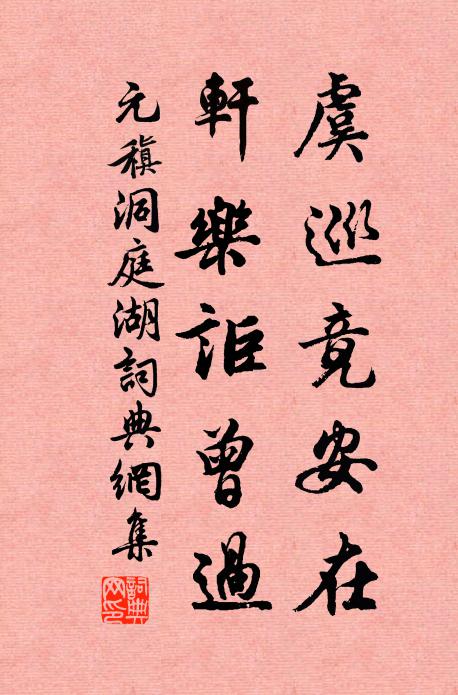 虞巡竟安在
軒樂詎曾過
元稹洞庭湖詞典網集
詞典網印